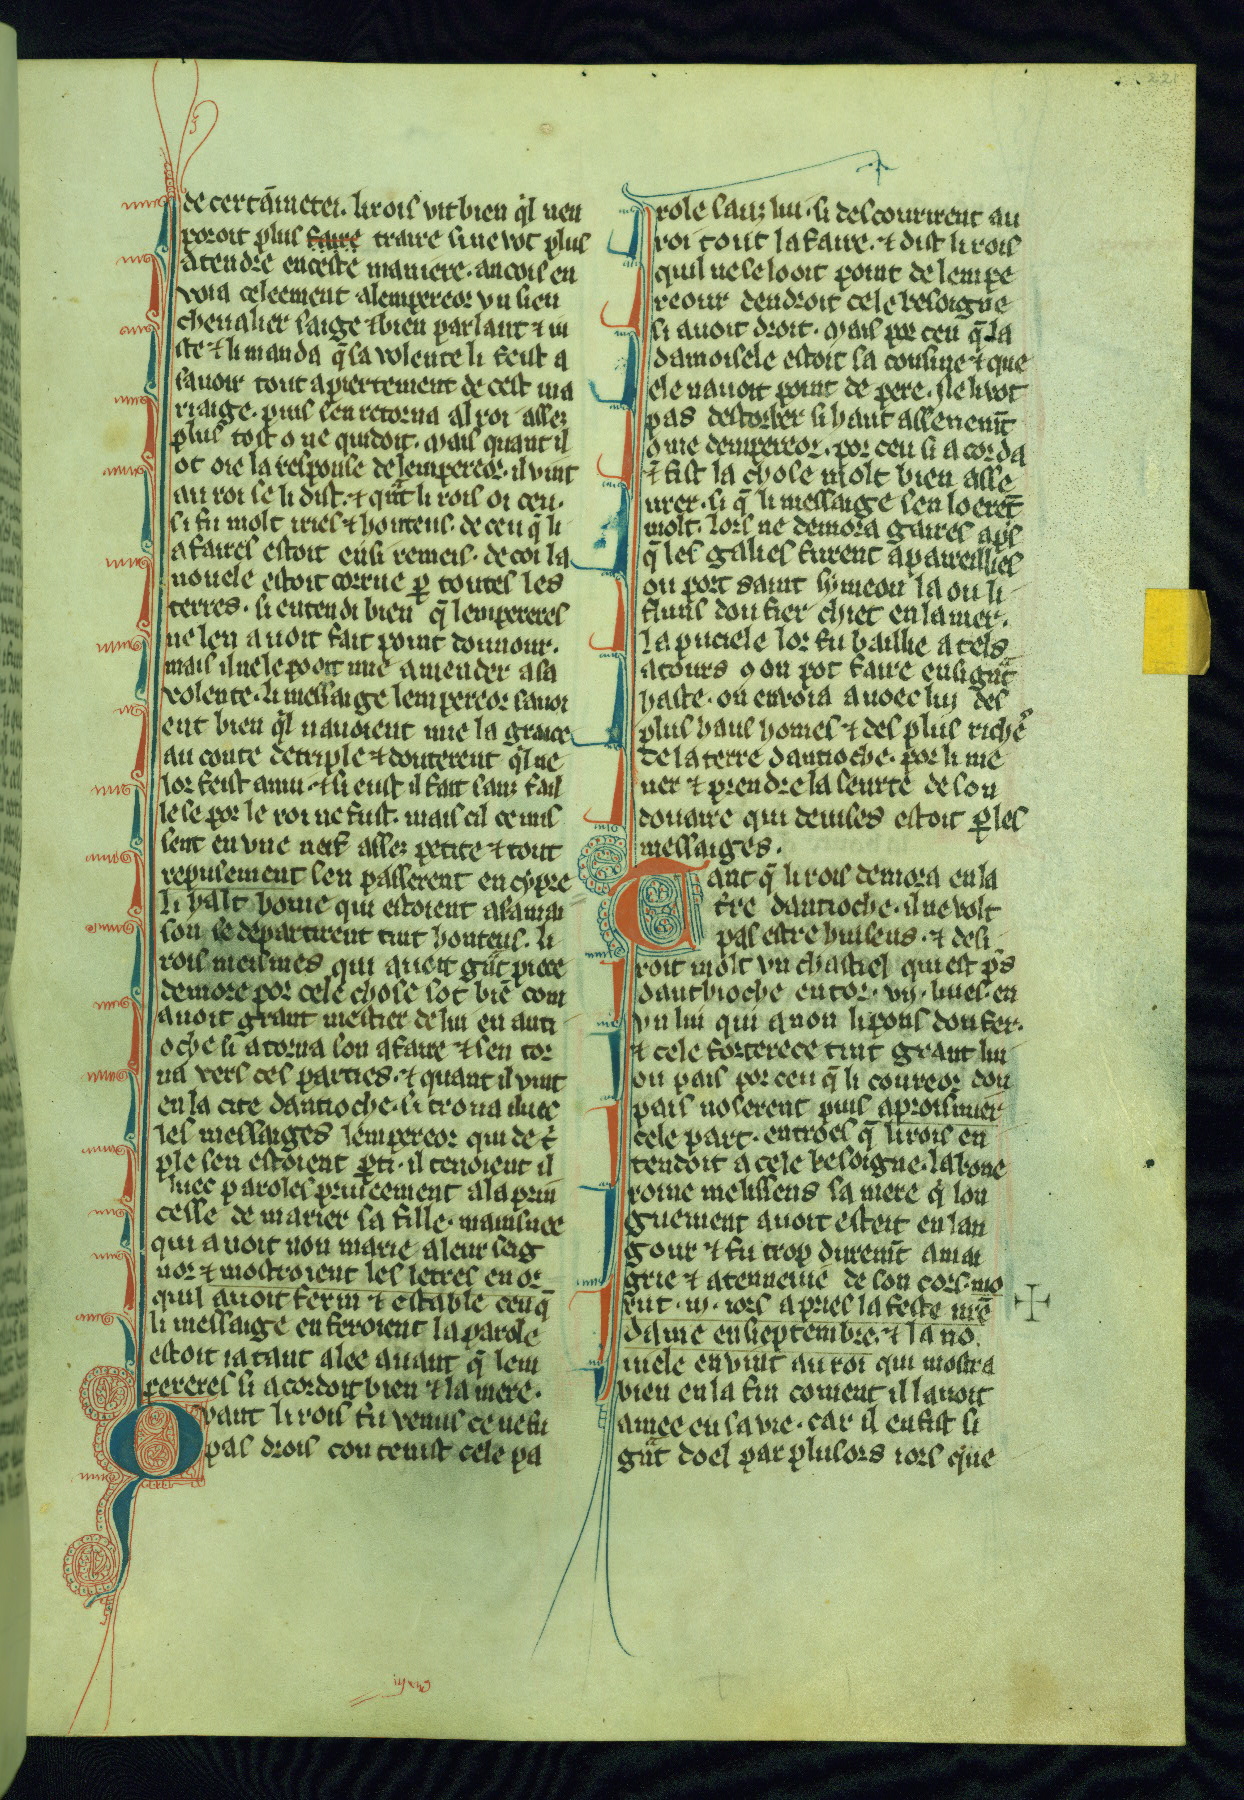 de certā metei. li rois vit bien q̄l nen
poroit plus faire traire si ne vot plus
atendre en ceste maniere. ancois en
voia celeement a lempereor vn sien
chevalier saige ⁊ bien parlant ⁊ iu
ste ⁊ li manda q̄ sa volente li feist a
savoir tout apiertement de cest ma
riaige. puis sen retorna al roi assez
plus tost q ne quidoit. mais quant il
ot oie la response de lempereor. il vint
au roi se li dist. ⁊ qūt li rois oi ceu.
si fu molt iries ⁊ honteus. de ceu q̄ li
afaires estoit ensi remeis. de coi la
novele estoit corrue p̄ toutes les
terres. si entendi bien q̄ lempereres
ne len avoit fait point donnour.
mais il ne le pooit mie amender a sa
volente. li messaige lempereor savoi
ent bien q̄l navoient mie la graice
au conte de triple ⁊ douterent q̄l ne
lor feist anui. ⁊ si eust il fait sanz fail
le se por le roi ne fust. mais cil ce mis
sent en vne neif assez petite ⁊ tout
repusement sen passerent en cypre
li halt home qui estoient a samai
son se departirent tint honteus. li
rois meismes qui aveit gūt piece
demore por cele chose sot biē com
avoit grant mestier de lui en anti
oche si atorna son afaire ⁊ sen tor
na vers ces parties. ⁊ quant il vint
en la cite dantioche. si trova iluec
les messaiges lempereor qui de t̄
ple sen estoient p̄ti. il tenoient il
luec paroles priveement a la prin
cesse de marier sa fille. mainsnee
qui avoit non marie a leur seig
nor ⁊ mostroient les letres en or
quil avoit ferm ⁊ estable ceu q̄
li messaige en feroient la parole
estoit ia tant alee avant q̄ lem
pereres si acordoit bien ⁊ la mere.
Qvant li rois fu venus ce ne fu
pas drois con tenist cele pa
role sanz lui. si descouvrirent au
roi tout lafaire. ⁊ dist li rois
quil ne se looit point de lempe
reour dendroit cele besoigne
si avoit droit. mais por ceu q̄ la
damoisele estoit sa cousine ⁊ que
ele navoit point de pere. il e li vot
pas destorber si haut assenemt̄
9me dempereor. por ceu si acorda
⁊ fist la chose molt bien asse
urer. si q̄ li messaige sen loerēt
molt. lors ne demora gaires ap̄s
q̄ les galies furent apareillies
ou port saint symeon la ou li
fluns dou fier chiet en la mer.
la puciele lor fu baillie a tels
atours 9 on pot faire en si gūt
haste. on envoia avoec lui des
plus haus homes ⁊ des plus riche9
de la terre dantioche. por li me
ner ⁊ prendre la seurte de son
douaire qui devises estoit p̄ les
messaiges.
Tant q̄ li rois demora en la
t̄re dantioche. il ne volt
pas estre huiseus. ⁊ desi
roit molt vn chastiel qui est p̄s
danthioche entor. vij. liues. en
vn liu qui a non li pons dou fer.
⁊ cele forterece tint grant liu
ou pais por ceu q̄ li coureor dou
pais noserent puis aproismier
cele part. entroes q̄ li rois en
tendoit a cele besoigne. la bone
roine melissens sa mere q̄ lon
guement avoit esteit en lan
gour ⁊ fu trop duremt̄ amai
grie ⁊ atenuevie de son cors. mo
rut. iij. iors apries la feste nr̄e
dame en sieptembre. ⁊ la no
vuele en vint au roi qui mostra
bien en la fin coment il lavoit
amee en sa vie. car il en fist si
gūt doel par plusors iors que